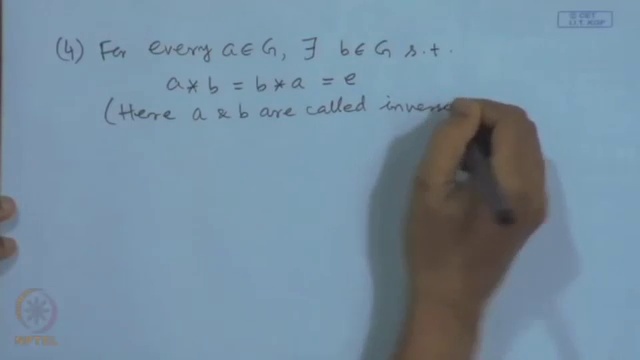 © CET
I.I.T. KGP
(4) For every a ∈ G, ∃ b ∈ G s.t.
a * b = b * a = e
(Here a & b are called inverse
NPTEL